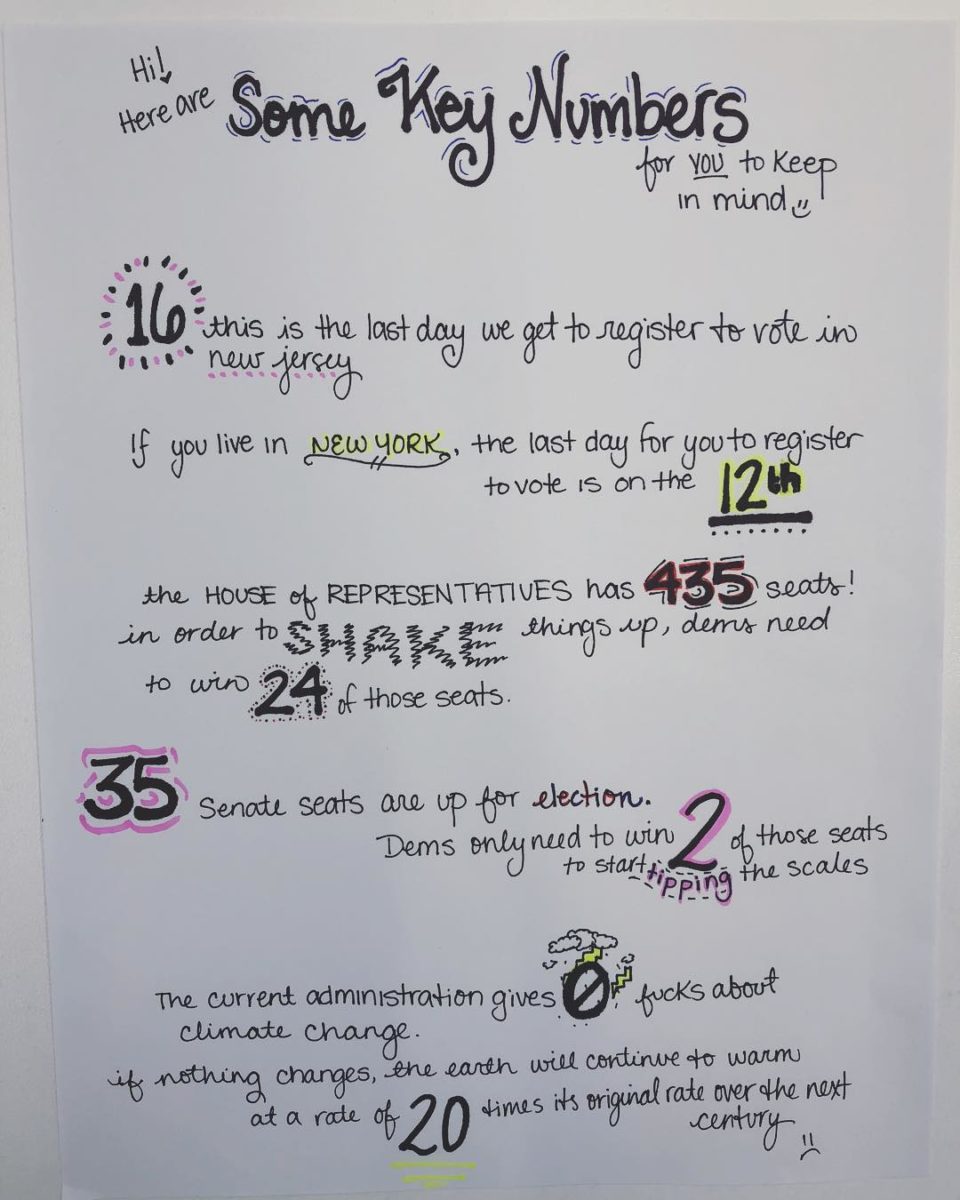 Hi!
Here are Some Key Numbers
for YOU to keep
in mind
16 this is the last day we get to register to vote in
new jersey
If you live in NEW YORK, the last day for you to register
to vote is on the 12th
the HOUSE of REPRESENTATIVES has 435 seats!
in order to SHAKE things up, dems need
to win 24 of those seats.
35 Senate seats are up for election.
Dems only need to win 2 of those seats
to start tipping the scales
The current administration gives 0 fucks about
climate change.
if nothing changes, the earth will continue to warm
at a rate of 20 times its original rate over the next
century